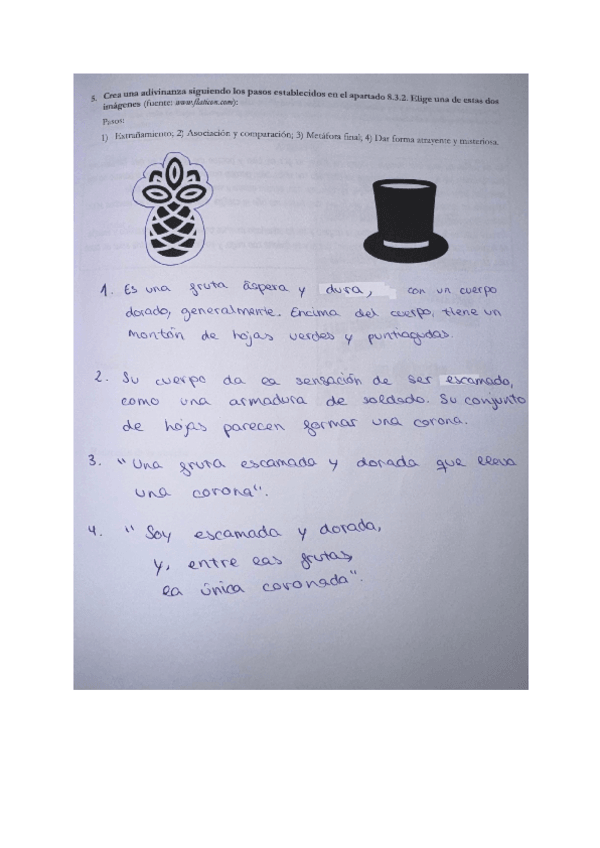 5. Crea una adivinanza siguiendo los pasos establecidos en el apartado 8.3.2. Elige una de estas dos
imágenes (fuente: www.flaticon.com):
Pasos:
1) Extrañamiento; 2) Asociación y comparación; 3) Metáfora final; 4) Dar forma atrayente y misteriosa.
1. Es una fruta áspera y dura, con un cuerpo
dorado, generalmente. Encima del cuerpo, tiene un
montón de hojas verdes y puntiagudas.
2. Su cuerpo da la sensación de ser escamado,
como una armadura de soldado. Su conjunto
de hojas parecen formar una corona.
3. "Una fruta escamada y dorada que lleva
una corona".
4. "Soy escamada y dorada,
y, entre las frutas,
la única coronada".